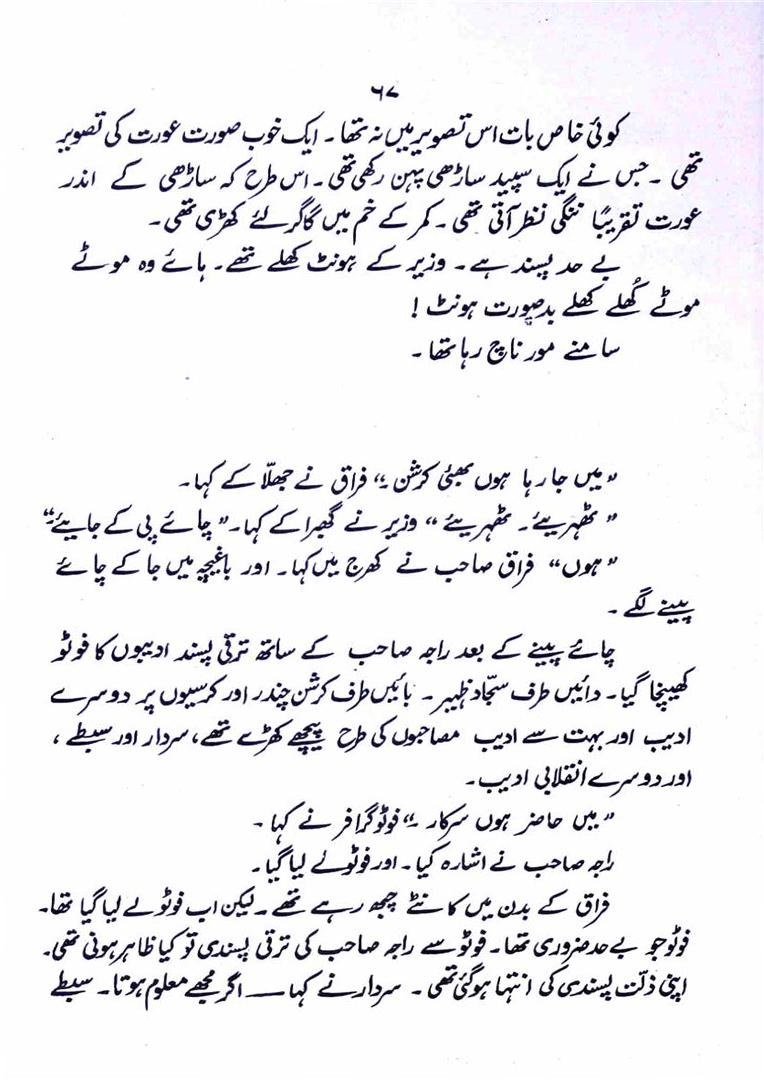 ۶۷
کوئی خاص بات اس تصویر میں نہ تھا۔ ایک خوب صورت عورت کی تصویر
تھی ۔ جس نے ایک سپید ساڑھی پہن رکھی تھی۔ اس طرح کہ ساڑھی کے اندر
عورت تقریبًا ننگی نظر آتی تھی ۔ کمر کے خم میں گاگر لئے کھڑی تھی۔
بے حد پسند ہے۔ وزیر کے ہونٹ کھلے تھے۔ ہائے وہ موٹے
موٹے کُھلے کھلے بدصورت ہونٹ !
سامنے مور ناچ رہا تھا۔
”میں جا رہا ہوں بھئی کرشن۔“ فراق نے جھلّا کے کہا۔
”ٹھہریئے۔ ٹھہریئے“ وزیر نے گھبرا کے کہا۔ ”چائے پی کے جایئے“
”ہوں“ فراق صاحب نے کھرج میں کہا۔ اور باغیچہ میں جا کے چائے
پینے لگے۔
چائے پینے کے بعد راجہ صاحب کے ساتھ ترقی پسند ادیبوں کا فوٹو
کھینچا گیا۔ دائیں طرف سجّاد ظہیر۔ بائیں طرف کرشن چندر اور کرسیوں پر دوسرے
ادیب اور بہت سے ادیب مصاحبوں کی طرح پیچھے کھڑے تھے، سردار اور سبطے ،
اور دوسرے انقلابی ادیب۔
”میں حاضر ہوں سرکار۔“ فوٹوگرافر نے کہا۔
راجہ صاحب نے اشارہ کیا۔ اور فوٹو لے لیا گیا۔
فراق کے بدن میں کانٹے چبھ رہے تھے۔ لیکن اب فوٹو لے لیا گیا تھا۔
فوٹو جو بے حد ضروری تھا۔ فوٹو سے راجہ صاحب کی ترقی پسندی تو کیا ظاہر ہونی تھی۔
اپنی ذلّت پسندی کی انتہا ہوگئی تھی۔ سردار نے کہا ـــــ اگر مجھے معلوم ہوتا۔ سبطے